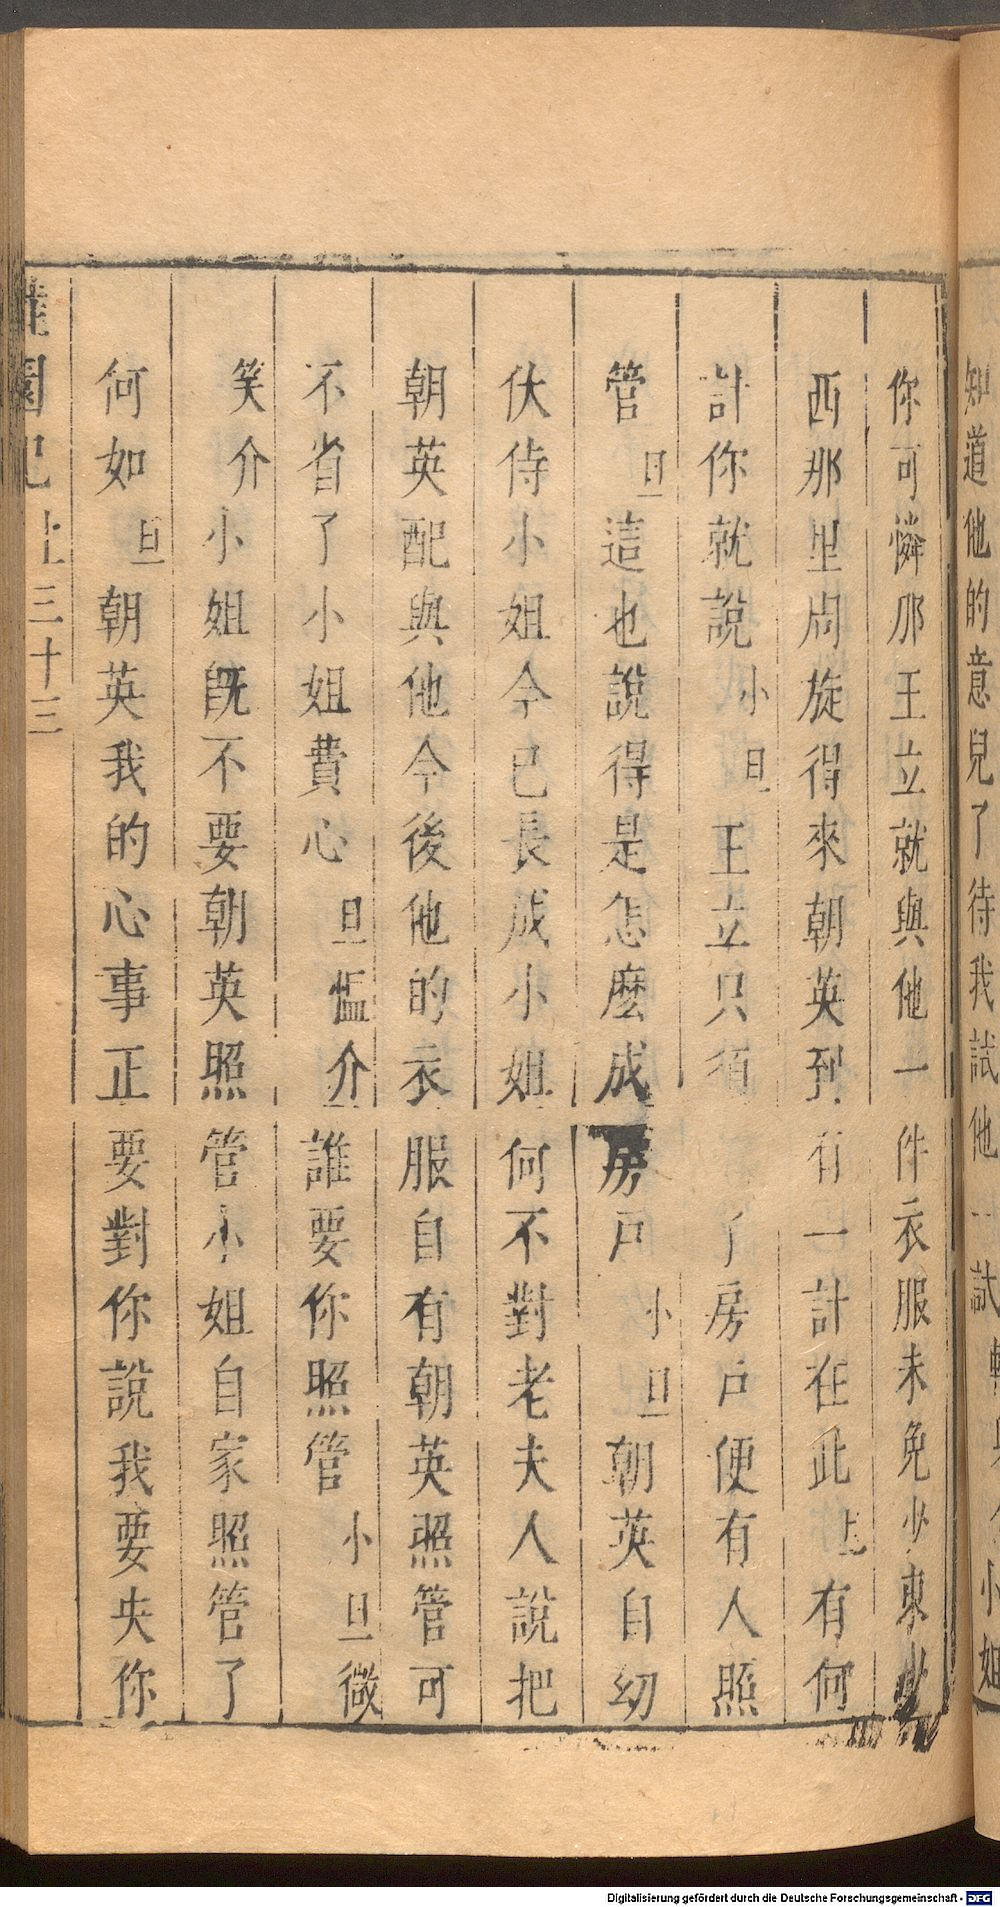 知道他的意兒了待我試他一試
小姐
你可憐那王立就與他一件衣服未免少東少
西那里周旋得來朝英到有一計在此旦有何
計你就說小旦王立只須了房戶便有人照
管旦這也說得是怎麽成房戶小旦朝英自幼
伏侍小姐今已長成小姐何不對老夫人說把
朝英配與他今後他的衣服自有朝英照管可
不省了小姐費心旦慍介誰要你照管小旦微
笑介小姐旣不要朝英照管小姐自家照管了
何如旦朝英我的心事正要對你說我要央你
園記上三十三
Digitalisierung gefördert durch die Deutsche Forschungsgemeinschaft - DFG